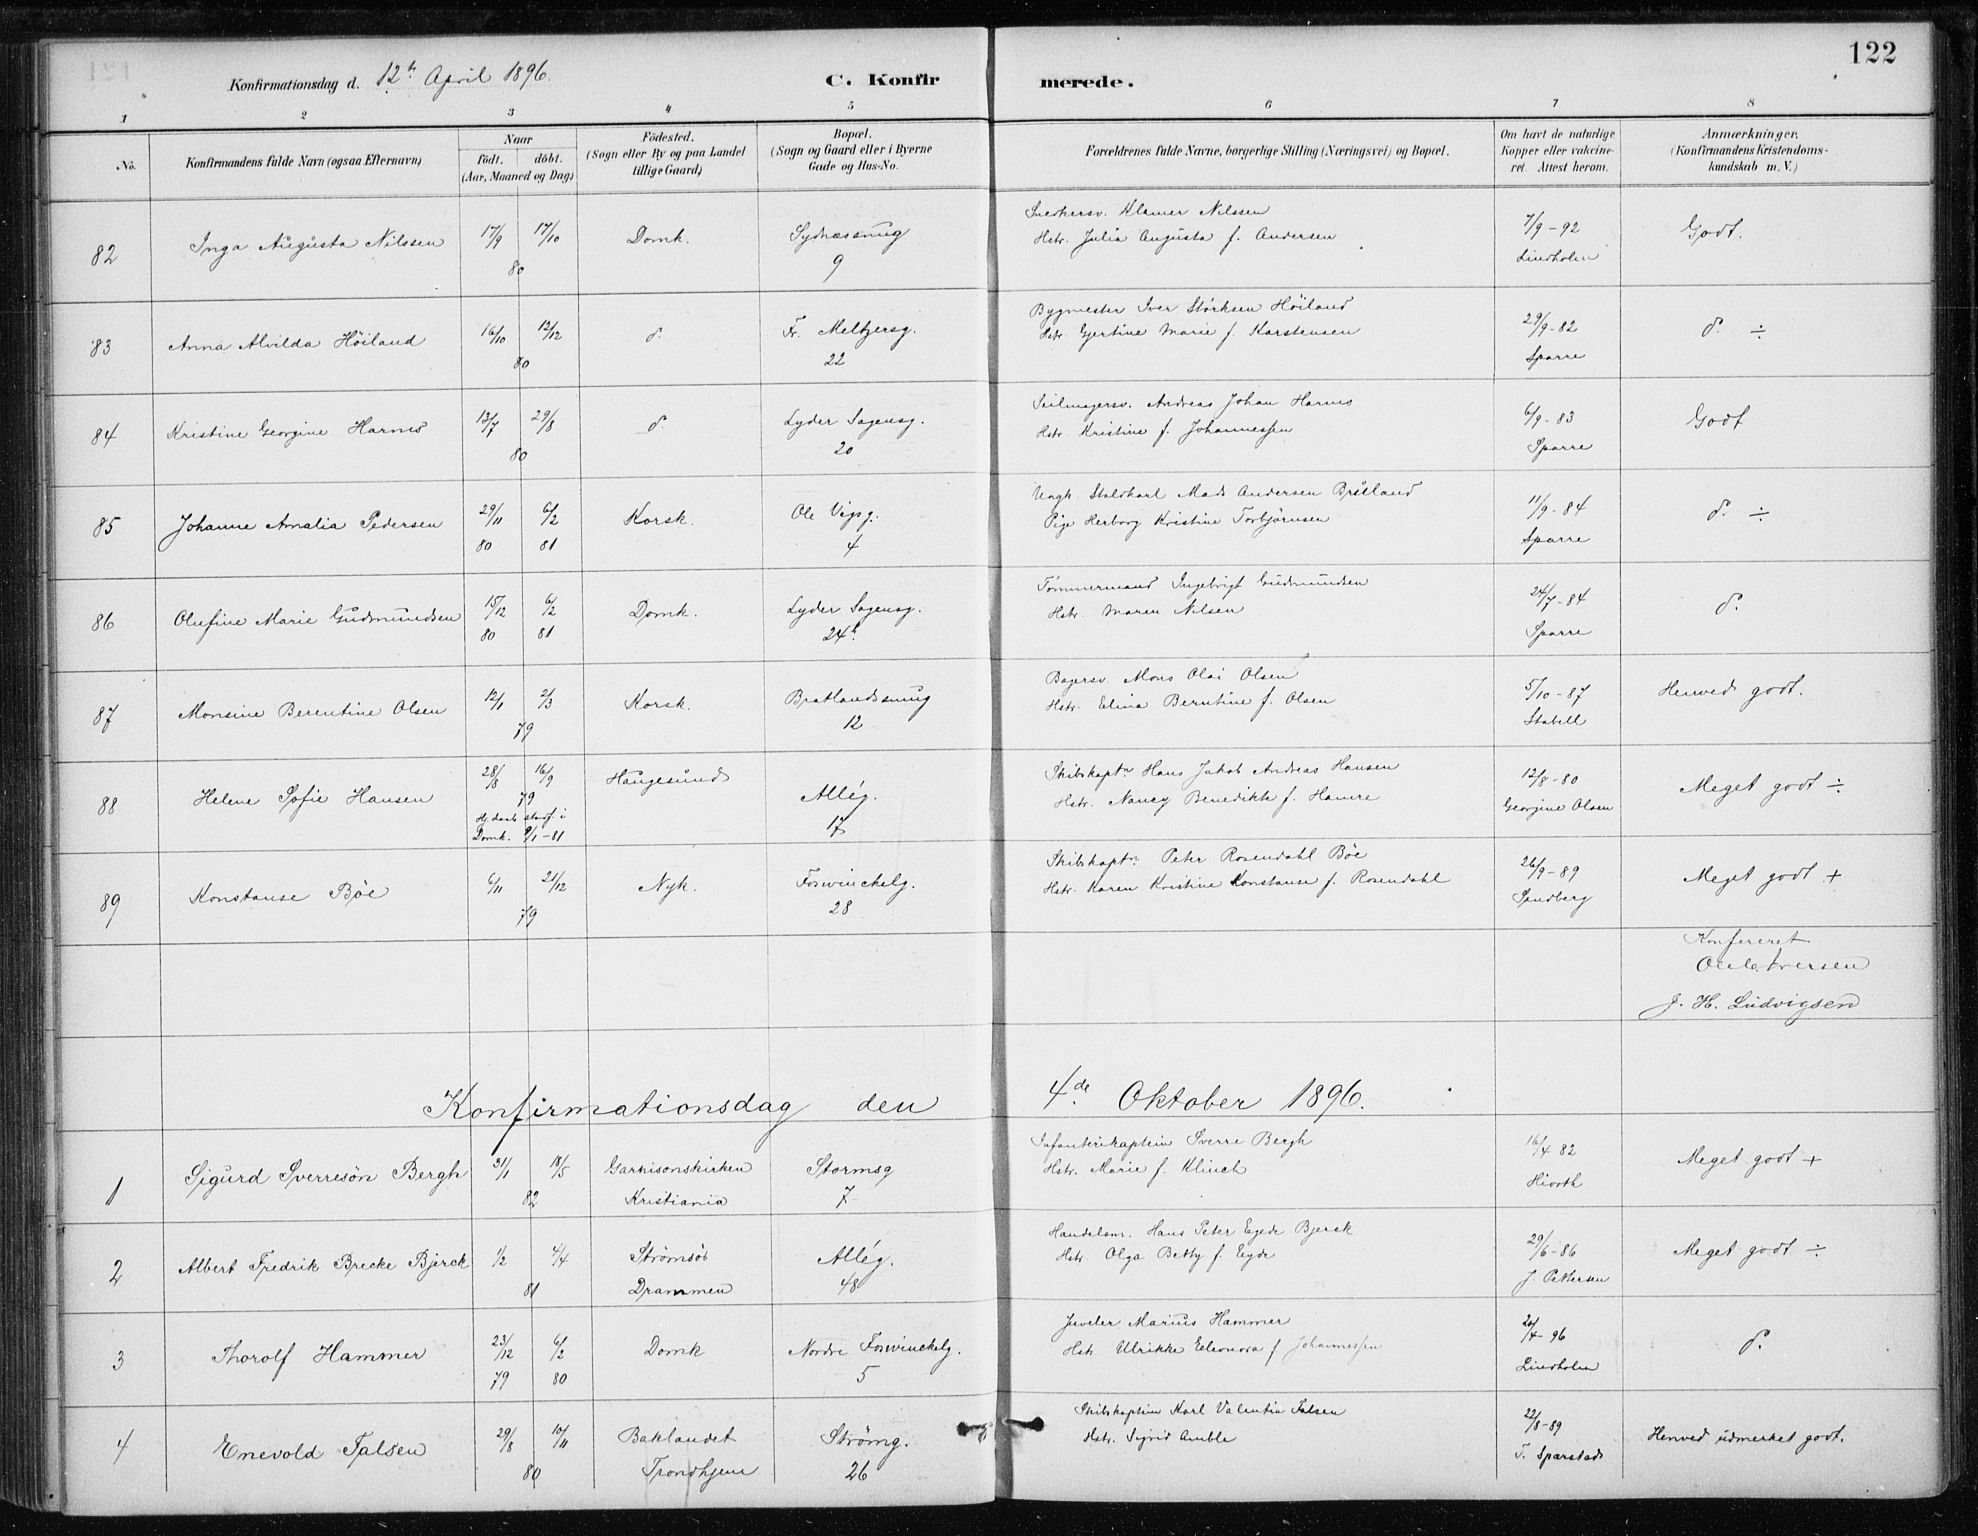 122
Konfirmationsdag d. 12te April 1896.
C. Konfirmerede.
1 2 3 4 5 6 7 8
No.
Konfirmandens fulde Navn (ogsaa Efternavn)
Naar
födt. döbt.
(Aar, Maaned og Dag)
Födested.
(Sogn eller By og paa Landet
tillige Gaard)
Bopæl.
(Sogn og Gaard eller i Byerne
Gade og Hus-No.
Forældrenes fulde Navne, borgerlige Stilling (Næringsvei) og Bopæl.
Om havt de naturlige
Kopper eller vakcine-
ret. Attest herom.
Anmærkninger.
(Konfirmandens Kristendoms-
kundskab m. V.)
82 Inga Augusta Nilssen 17/9 17/10 80 Domk. Sydnæssmug 9
Snedkersv. Klamer Nilssen
Hstr. Julia Augusta f. Andersen
7/9-92 Lindholm Godt.
83 Anna Alvilda Höiland 16/10 12/12 80 d. Fr. Meltzersg. 22
Bygmester Iver Störksen Höiland
Hstr. Gjertine Marie f. Karstensen
29/9-82 Sparre d. ÷
84 Kristine Georgine Harms 13/7 29/8 80 d. Lyder Sagensg. 20
Seilmagersv. Andreas Johan Harms
Hstr. Kristine f. Johannessen
6/9-83 Sparre Godt
85 Johanne Amalia Pedersen 29/11 80 6/2 81 Korsk. Ole Vigsg. 4
Ungk. Staldkarl Mads Andersen
Pige Herborg Kristine Torbjörnsen
11/9-84 Sparre d. ÷
86 Olufine Marie Gudmundsen 15/12 80 6/2 81 Domk. Lyder Sagensg. 24b.
Tömmermand Ingebrigt Gudmundsen
Hstr. Maren Nilsen
24/7-84 Sparre d.
87 Monsine Berentine Olsen 12/1 2/3 79 Korsk. Bratlandssmug 12
Bagersv. Mons Olai Olsen
Hstr. Elina Berntine f. Olsen
5/10-87 Stabell Henved godt.
88 Helene Sofie Hansen 28/8 16/9 79
Hj.daab stadf. i
Domk. 9/1-81
Haugesund Allég. 17
Skibskaptn Hans Jakob Andreas Hansen
Hstr. Nancy Benedikte f. Hamre
12/8-80 Georgine Olsen Meget godt ÷
89 Konstanse Böe 6/11 21/12 79 Nyk. Foswinckelg. 28
Skibskaptn. Peter Rosendahl Böe
Hstr. Karen Kristine Konstanse f. Rosendahl
26/9-89 Sandberg Meget godt +
Konfereret
J. H. Ludvigsen
Konfirmationsdag den 4de Oktober 1896.
1 Sigurd Sverresön Bergh 31/1 18/5 82 Garnisonskirken Kristiania Stormsg 7
Infanterikaptein Sverre Bergh
Hstr. Marie f. Klinch
16/4 82 Hiorth Meget godt +
2 Albert Fredrik Brecke Bjerck 1/2 4/4 81 Strömsöe Drammen Allég. 48
Handelsm. Hans Peter Egede Bjerck
Hstr. Olga Betty f. Eyde
29/6-86 J. Pettersen Meget godt ÷
3 Thorolf Hammer 23/12 79 6/2 80 Domk Nordre Foswinckelg. 5
Juveler Marius Hammer
Hstr Ulrikke Eleonora f Johannessen
20/4-96 Lindholm d.
4 Enevold Falsen 29/8 10/11 80 Baklandet Trondhjem Strömg. 26
Skibskaptein Karl Valentin Falsen
Hstr. Sigrid Amble
22/8-89 T. Sparstad Henved udmerket godt.